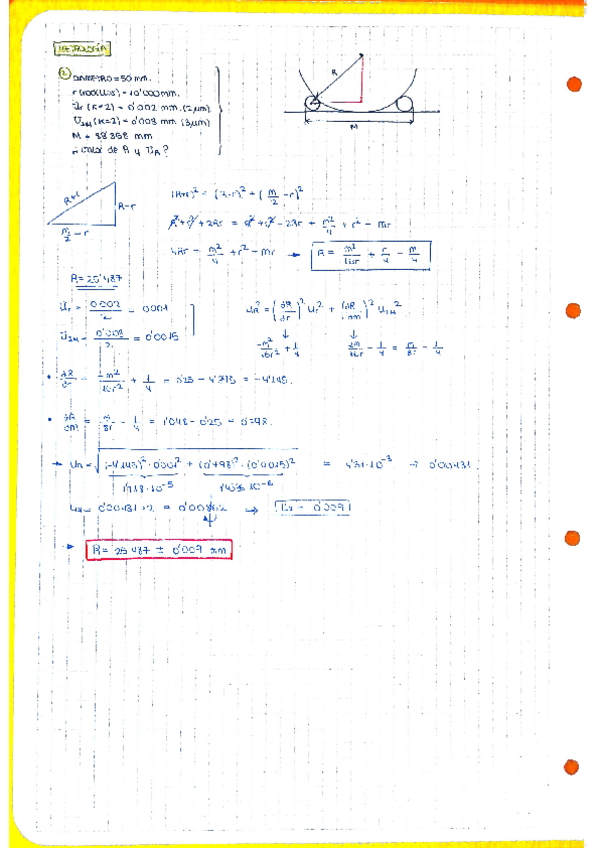 METROLOGÍA
2. DIÁMETRO = 50 mm.
r (rodillos) = 10'000 mm.
Ur (k=2) = 0'002 mm. (2 µm)
U (k=2) = 0'003 mm (3 µm)
M = 83'858 mm
¿Valor de R y UR?
R
M
R+r
R-r
m/2 - r
(R+r)² = (R-r)² + (m/2 - r)²
R² + r² + 2Rr = R² + r² - 2Rr + m²/4 + r² - mr
4Rr = m²/4 + r² - mr → R = m²/16r + r/4 - m/4
R = 25'487
Ur = 0'002/2 = 0'001
= 0'003/2 = 0'0015
uR² = (∂R/∂r)² ur² + (∂R/∂m)²
-m²/16r² + 1/4
2m/16r - 1/4 = m/8r - 1/4
• ∂R/∂r = -m²/16r² + 1/4 = 0'25 - 4'395 = -4'145.
• ∂R/∂m = m/8r - 1/4 = 1'048 - 0'25 = 0'798.
→ uR = √((-4'145)² · 0'001² + (0'798)² · (0'0015)²) = 4'31·10⁻³ → 0'00431.
1'718·10⁻⁵
10⁻⁶
UR = 0'00431·2 = 0'00862 → UR = 0'009
→ R = 25'487 ± 0'009 mm